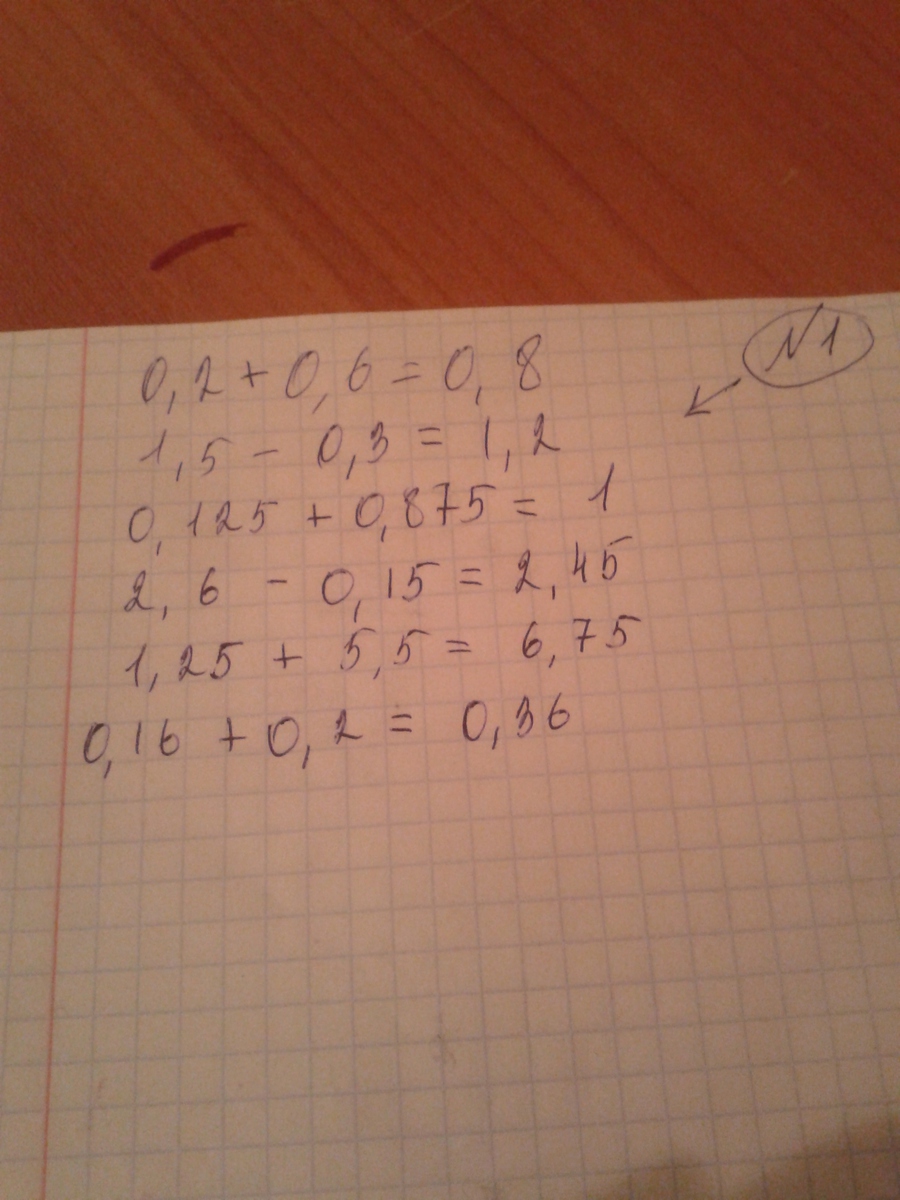 N1
0,2 + 0,6 = 0,8
1,5 - 0,3 = 1,2
0,125 + 0,875 = 1
2,6 - 0,15 = 2,45
1,25 + 5,5 = 6,75
0,16 + 0,2 = 0,36